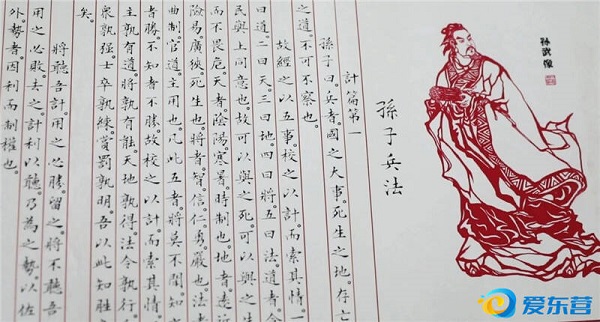 孙武像
孫子兵法
計篇第一
孫子曰。兵者。國之大事。死生之地。存亡
之道。不可不察也。
故經之以五事。校之以計。而索其情。一
曰道。二曰天。三曰地。四曰將。五曰法。道者。令
民與上同意也。故可以與之死。可以與之生。
而不畏危。天者。陰陽。寒暑。時制也。地者。遠近。
險易。廣狹。死生也。將者。智。信。仁。勇。嚴也。法者。
曲制。官道。主用也。凡此五者。將莫不聞。知
者勝。不知者不勝。故校之以計。而索其情。
主孰有道。將孰有能。天地孰得。法令孰行。
眾孰強。士卒孰練。賞罰孰明。吾以此知勝
矣。
將聽吾計。用之必勝。留之。將不聽吾
用之必敗。去之。計利以聽。乃為之勢。以佐
外。勢者。因利而制權也。
爱东营